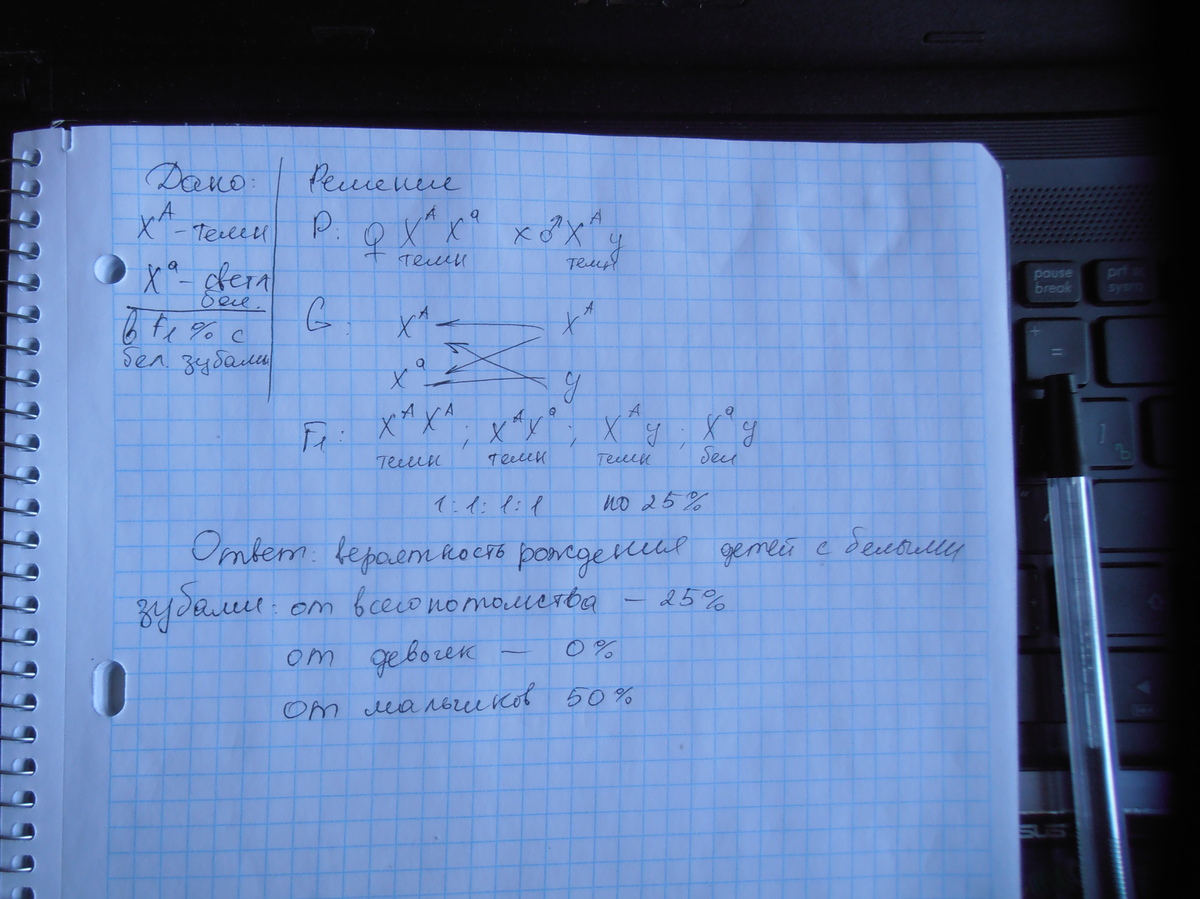 Дано:
X^A - темн
X^a - светл
бел.
в F1 % с
бел. зубами
Решение
P: ♀ X^A X^a x ♂ X^A y
темн темн
G: X^A X^A
X^a y
F1: X^A X^A ; X^A X^a ; X^A y ; X^a y
темн темн темн бел
1:1:1:1 по 25%
Ответ: вероятность рождения детей с белыми
зубами: от всего потомства – 25%
от девочек — 0%
от мальчиков 50%
pause
break
prt sc
sysrq
+
=
]
ъ